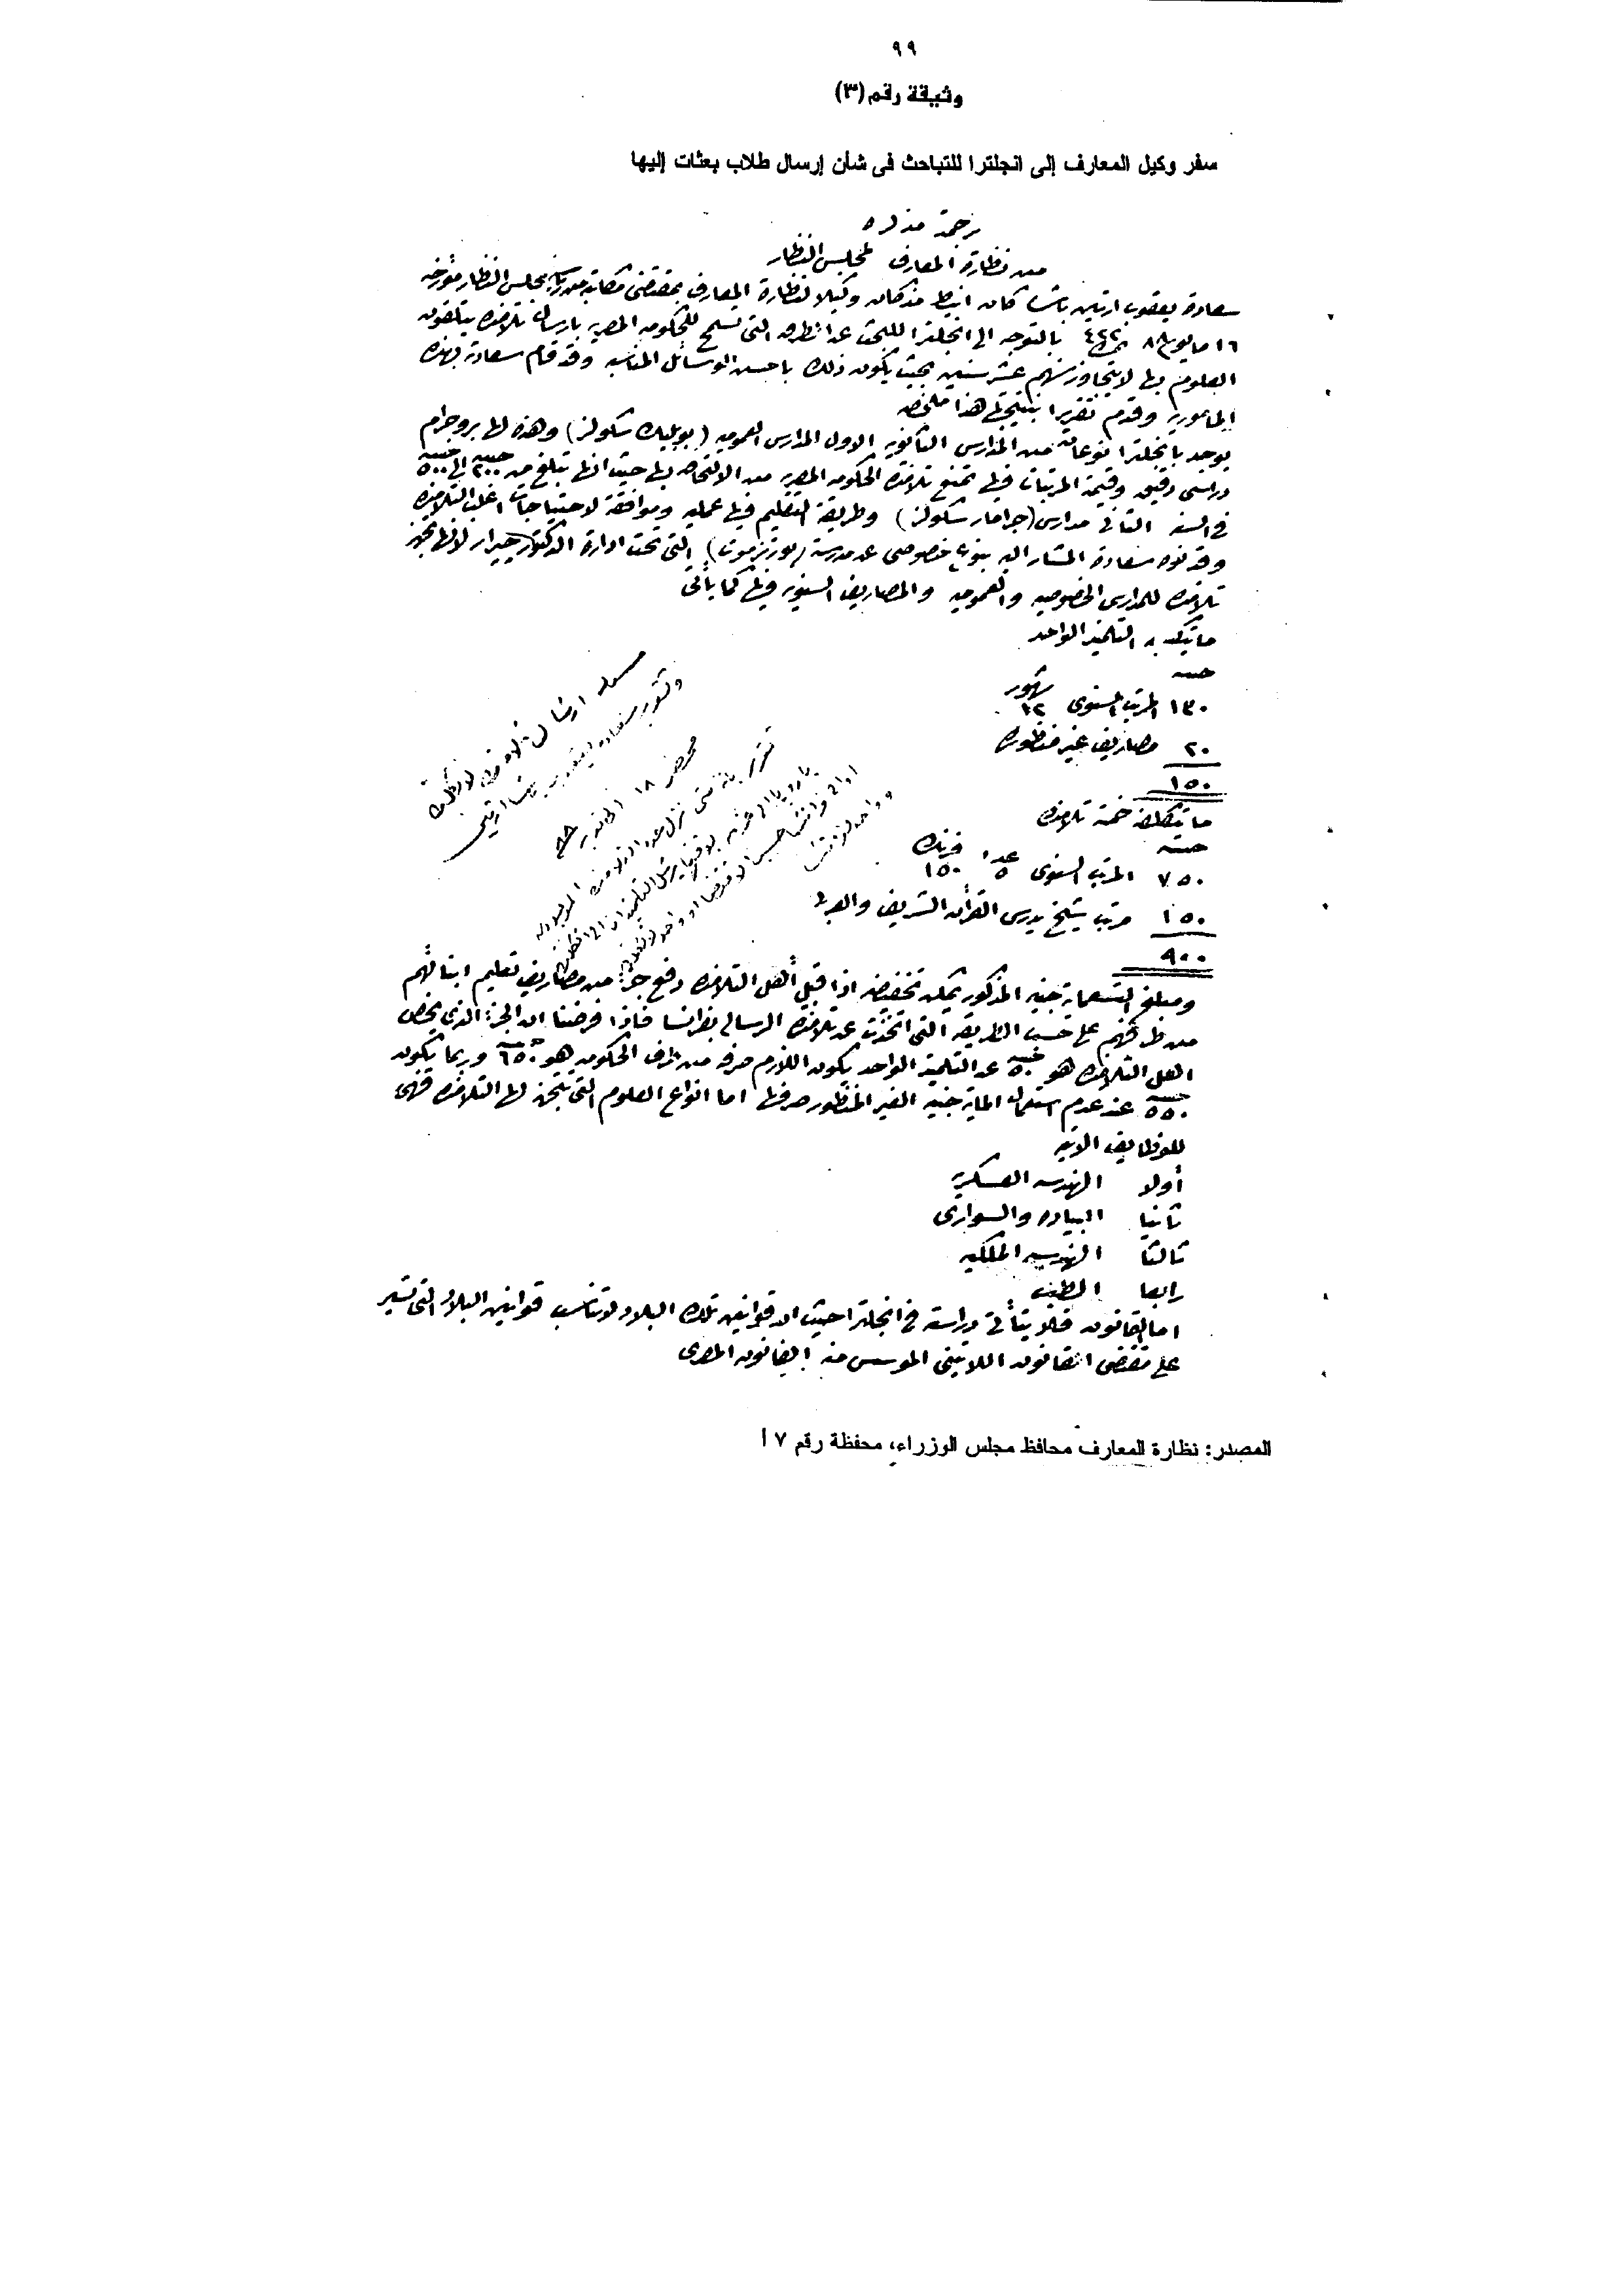 ٩٩
وثيقة رقم (٣)
سفر وكيل المعارف إلى انجلترا للتباحث فى شأن إرسال طلاب بعثات إليها
ترجمة مذكره
من نظارة المعارف لمجلس النظار
سعادة يعقوب ارتين باشا كان انيط مذ كان وكيلا لنظارة المعارف بمقتضى مكاتبة من رياسة مجلس النظار مؤرخه
١٦ مايو ٨٨ نمرة بالتوجه الى انجلترا للبحث عن الطرق التى تسمح للحكومه المصريه بارسال تلامذه يتلقون
العلوم بها لا يتجاوز سنهم عشر سنين بحيث يكون ذلك باحسن الوسائل المناسبه وقد قام سعادته بهذه
المأموريه وقدم تقريرا بنتيجتها هذا ملخصه
يوجد بانجلترا نوعان من المدارس الثانويه الاول المدارس العموميه (بوبليك سكولز) وهذه لها بروجرام
دراسى دقيق وقيمة المرتبات فيها تمنع تلامذة الحكومه المصريه من الالتحاق بها حيث انها تبلغ من ٢٠٠ جنيه الى ٥٠٠ جنيه
فى السنه الثانى مدارس (جرامار سكولز) وطريقة التعليم فيها عمليه وموافقة لاحتياجات اغلب التلامذه
وقد نوه سعادة المشار اليه بنوع خصوصى عن مدرسة (بورتزموت) التى تحت ادارة الدكتور جيرار لانها تجهز
تلامذه للمدارس الخصوصيه والعموميه والمصاريف السنويه فيها كما يأتى
ما يتكلف به التلميذ الواحد
جنيه
١٣٠ المرتب السنوى ١٢ شهور
٢٠ مصاريف غير منظوره
١٥٠
ما يتكلفه خمسة تلامذه
جنيه
٧٥٠ المرتب السنوى عدد ٥ ١٥٠
١٥٠ مرتب شيخ يدرس القرآن الشريف والعربى
٩٠٠
مسئلة ارسال تلامذه لانكلتره
وتقرير سعادة يعقوب باشا ارتين
محضر ١٨
ومبلغ التسعماية جنيه المذكور يمكن تخفيضه اذا قبل أهل التلامذه دفع جزء من مصاريف تعليم ابنائهم
من طرفهم على حسب الطريقه التى اتخذت عن تلامذة الرساله بفرانسا فاذا فرضنا ان الجزء الذى يخص
اهل التلامذه هو ٥٠ جنيه عن التلميذ الواحد يكون اللازم صرفه من طرف الحكومه هو ٦٥٠ وربما يكون
٥٥٠ جنيه عند عدم استعمال الماية جنيه الغير المنظور صرفها اما انواع العلوم التى يتجهز لها التلامذه فهى
للوظايف الاتيه
أولا الهندسه العسكريه
ثانيا البياده والسوارى
ثالثا الهندسه الملكيه
رابعا الطب
اما القانون فلا يتأتى دراسته فى انجلترا حيث ان قوانين تلك البلاد لا تناسب قوانين البلاد التى تسير
على مقتضى القانون اللاتينى المؤسس منه القانون المصرى
المصدر: نظارة المعارف محافظ مجلس الوزراء، محفظة رقم ٧ أ